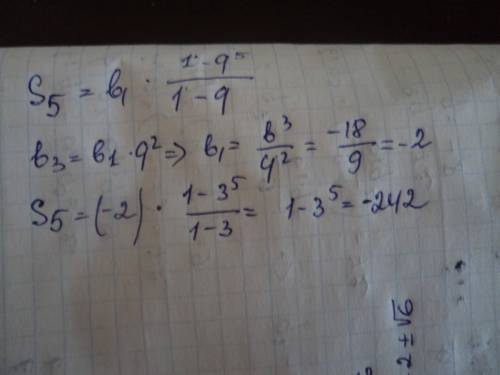 S₅ = b₁ · (1-q⁵)/(1-q)
b₃ = b₁·q² => b₁ = b³/q² = -18/9 = -2
S₅ = (-2) · (1-3⁵)/(1-3) = 1-3⁵ = -242
2 ± √6